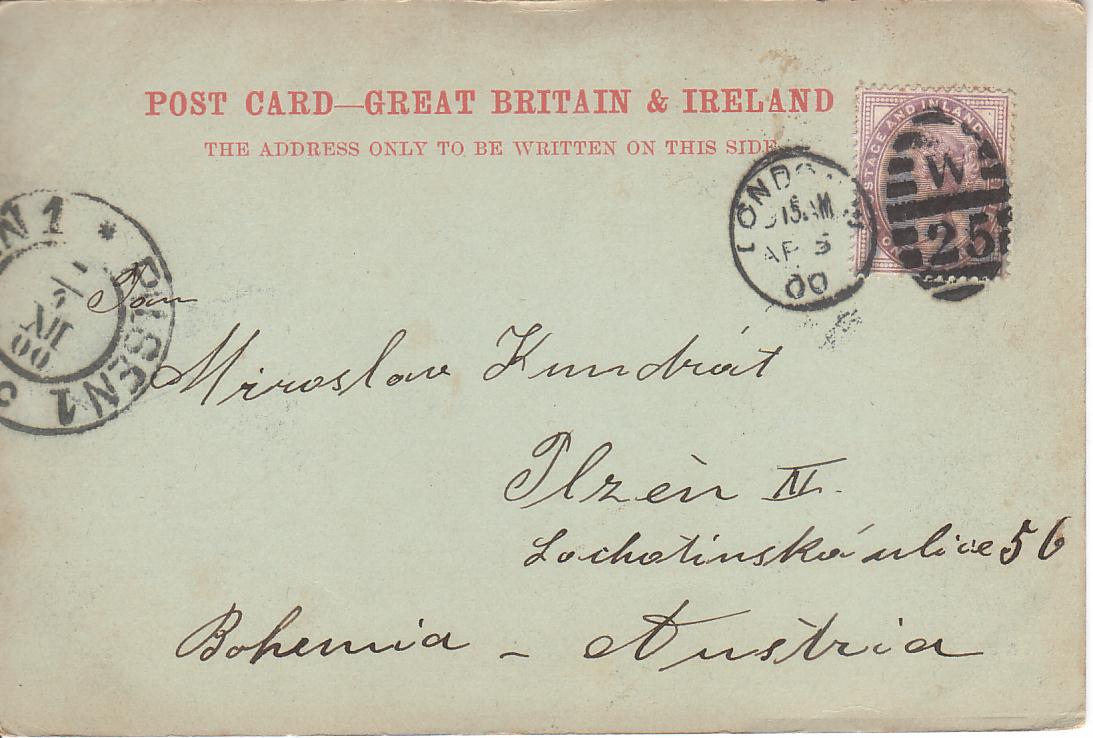 POST CARD—GREAT BRITAIN & IRELAND
THE ADDRESS ONLY TO BE WRITTEN ON THIS SIDE
POSTAGE AND INLAND
W
25
LONDON
AP 5
00
PILSEN 1
Pan
Miroslav Kundrát
Plzèn IV.
Lochotinská ulice 56
Bohemia - Austria